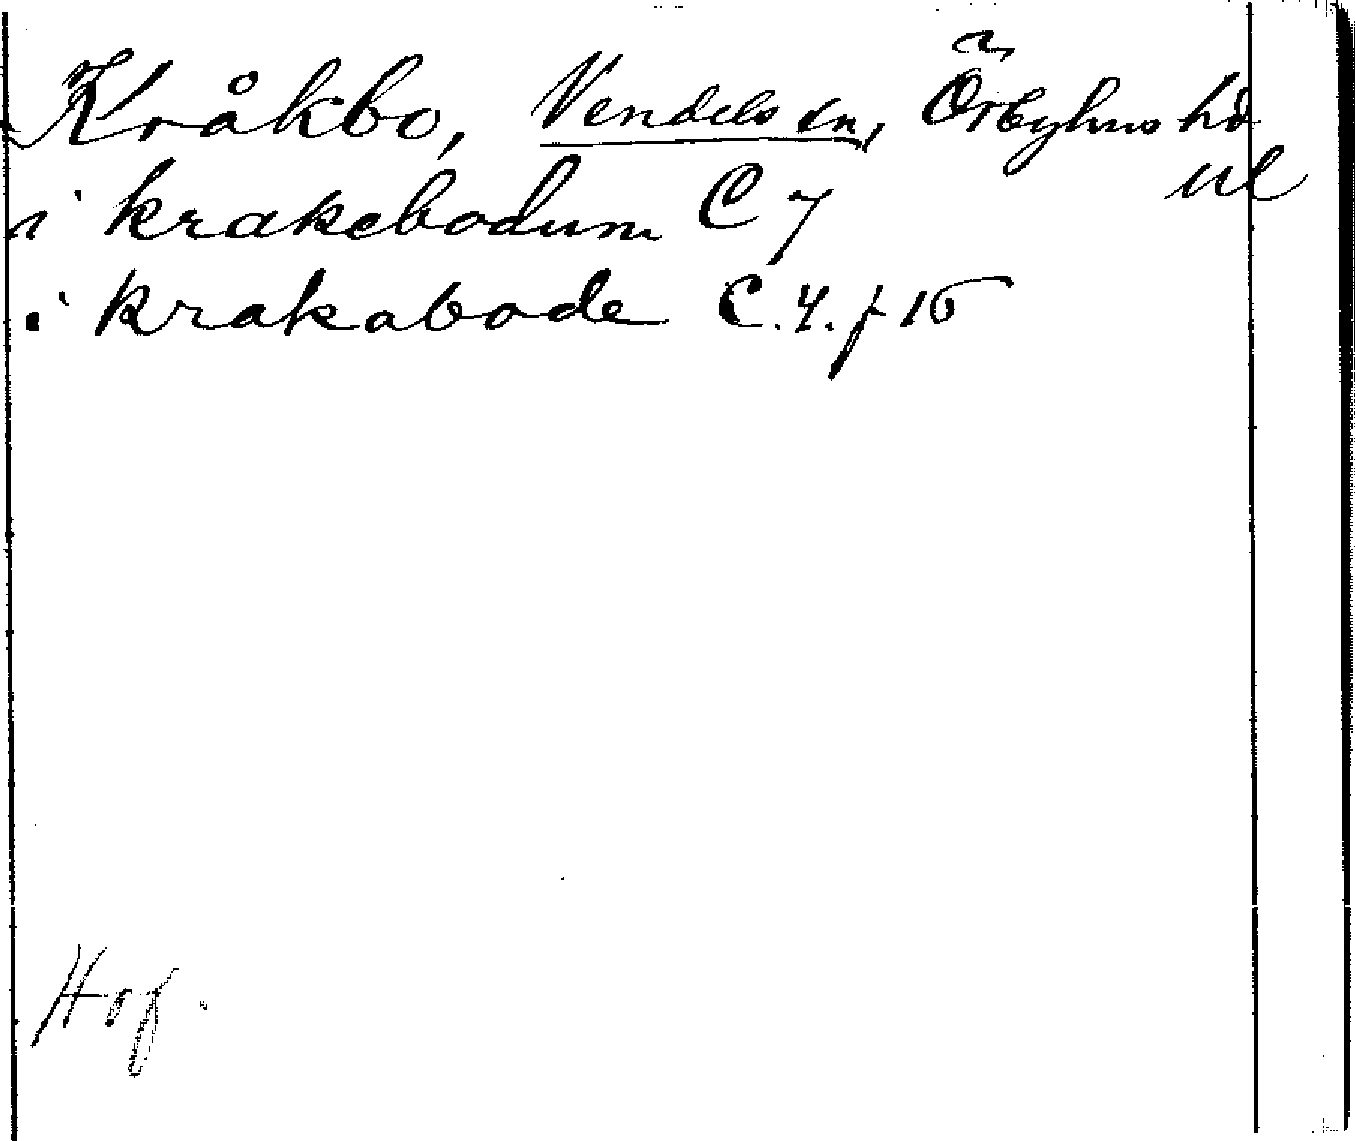 Kråkbo, Vendels sn, Örbyhus hd
Ul
i krakebodum C 7
i krakabode C. 4. f 15
Hof.